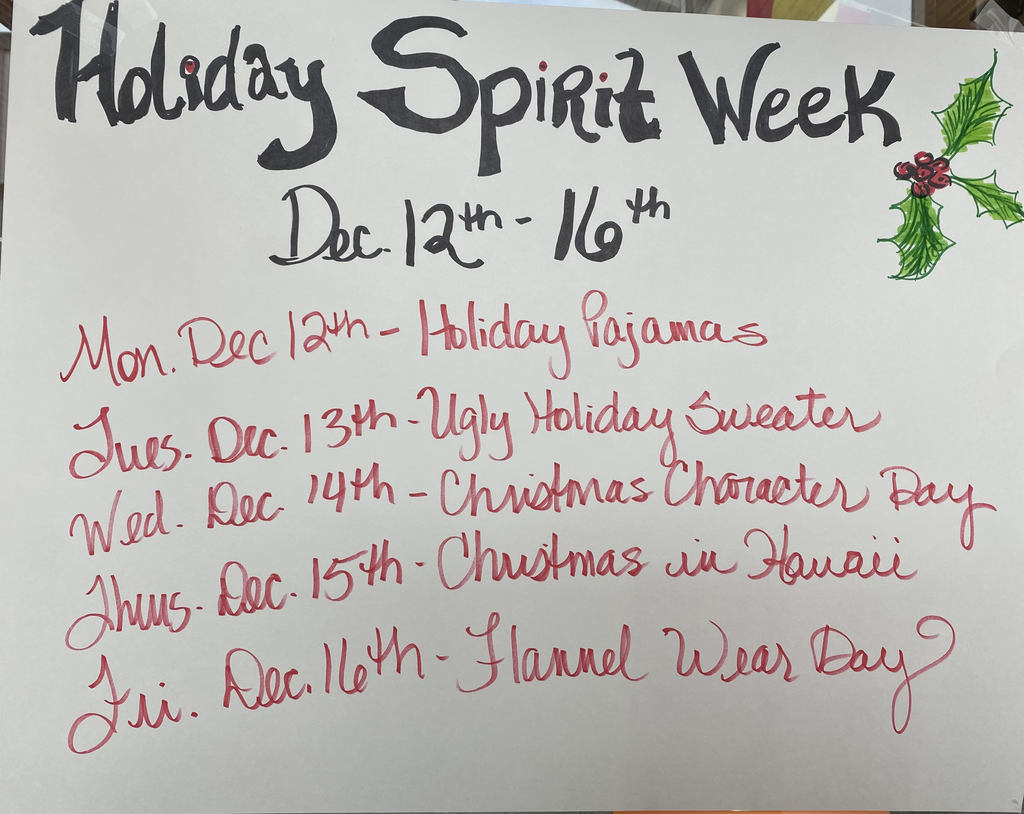 Holiday Spirit Week
Dec. 12th - 16th
Mon. Dec 12th - Holiday Pajamas
Tues. Dec. 13th - Ugly Holiday Sweater
Wed. Dec. 14th - Christmas Character Day
Thurs. Dec. 15th - Christmas in Hawaii
Fri. Dec. 16th - Flannel Wear Day